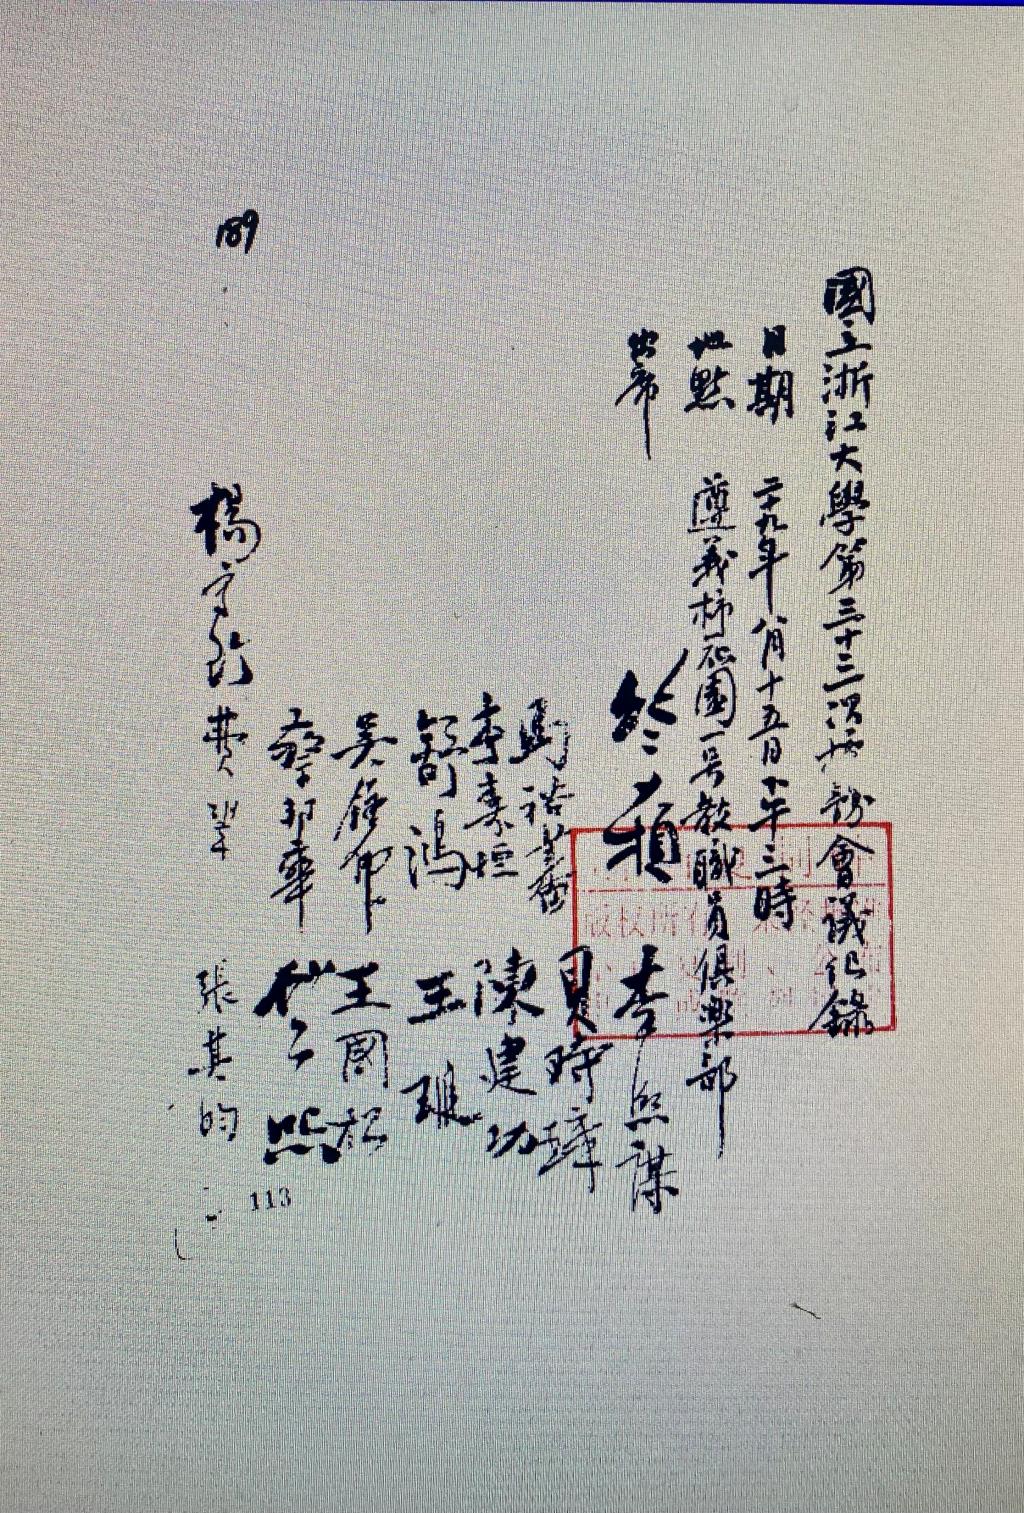 國立浙江大學第三十三次校務會議紀錄
日期 二十九年八月十五日下午三時
地點 遵義柿花園一号教職員俱樂部
出席
竺可楨 李熙謀
馬裕蕃 貝時璋
李素垣 陳建功
舒鴻 王璡
吳鍾伟 王國松
蔡邦華
楊守珍 費鞏 張其昀
189
113
版权所有